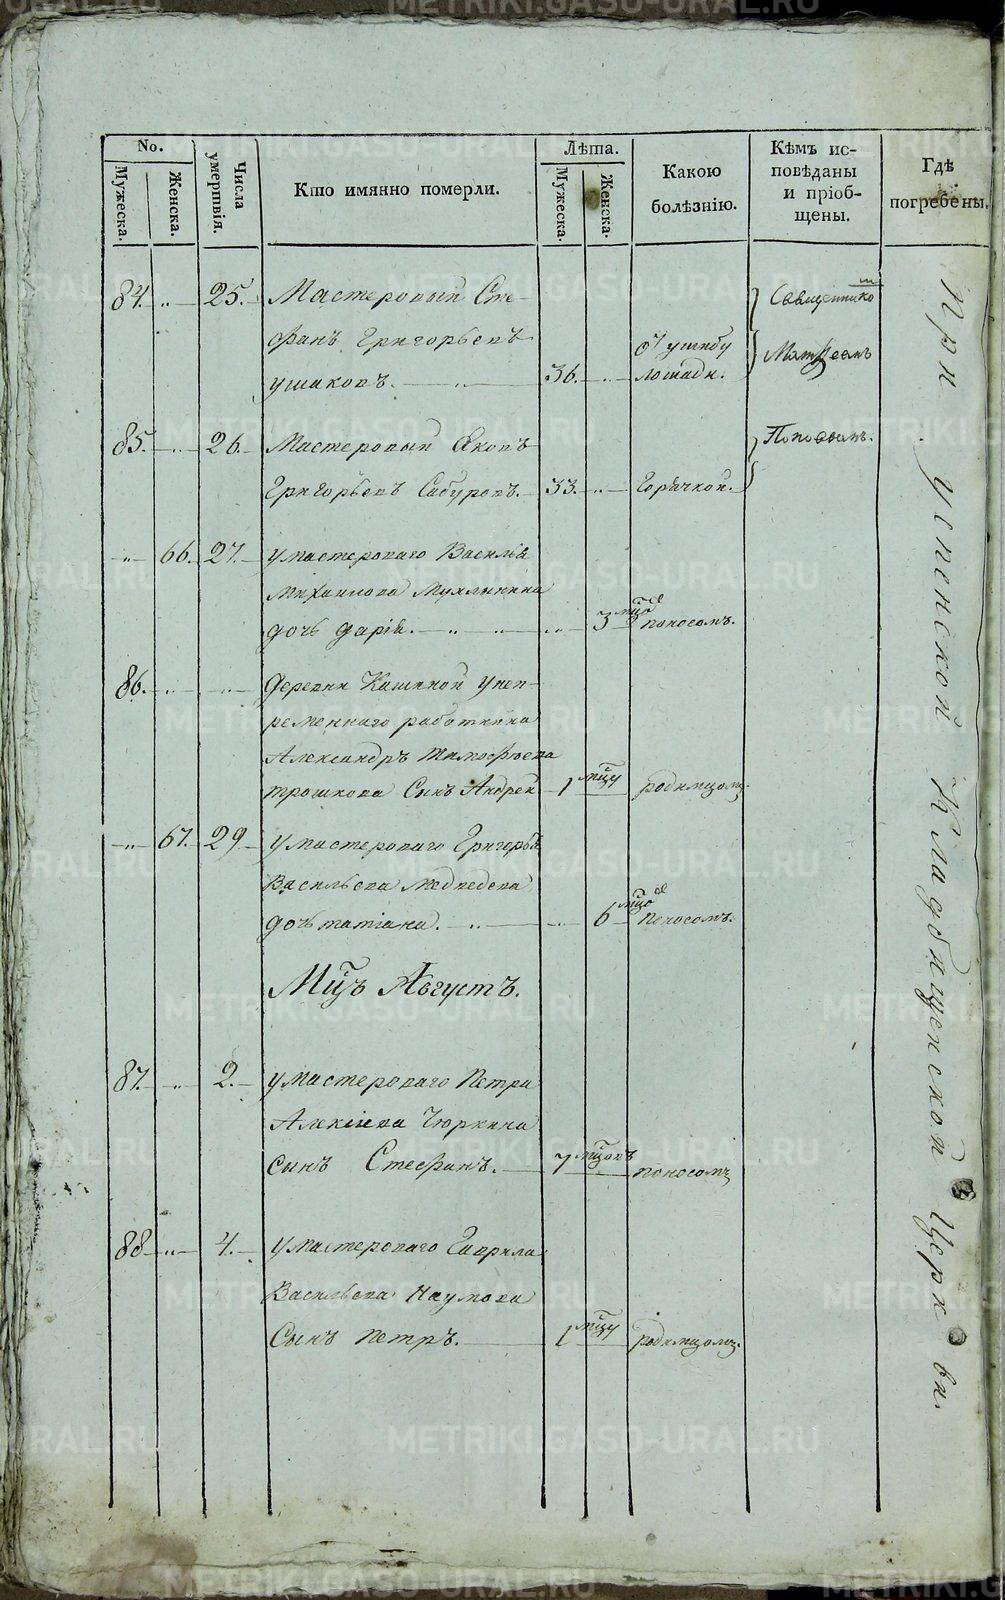 No.
Мужеска.
Женска.
Числа умертвія.
Кто имянно померли.
Лѣта.
Мужеска.
Женска.
Какою болѣзнію.
Кѣмъ исповѣданы и пріобщены.
Гдѣ погребены.
84. „ 25. Мастеровый Сте-
фанъ Григорьевъ
ушаковъ. „ 36. „ отъ ушибу лошади.
Священнико
Матфеемъ
Поповымъ.
85. „ 26. Мастеровый Яковъ
Григорьевъ Сабуровъ. 33. „ Горячкой.
„ 66. 27. у мастероваго Василья
Михаилова
дочь дарія. „ „ „ 3 мцов поносомъ.
86. „ „ деревни Кашиной у неп-
ременнаго работника
Александръ тимофѣева
трошкова Сынъ Андрей 1 мцу родимцомъ.
„ 67. 29 у мастероваго Григорья
Васильева Медведева
дочь татіана. „ „ 6 мцов поносомъ.
Мцъ Августъ.
87. „ 2. у Мастероваго Петра
Алексіева Чюркина
сынъ Стефанъ. 7 мцовъ поносомъ
88 „ 4. у Мастероваго Гаврила
Васильева Наумова
Сынъ Петръ. 1 мцу родимцомъ.
При успенской Кладбищенской Церкви.
METRIKI.GASO-URAL.RU